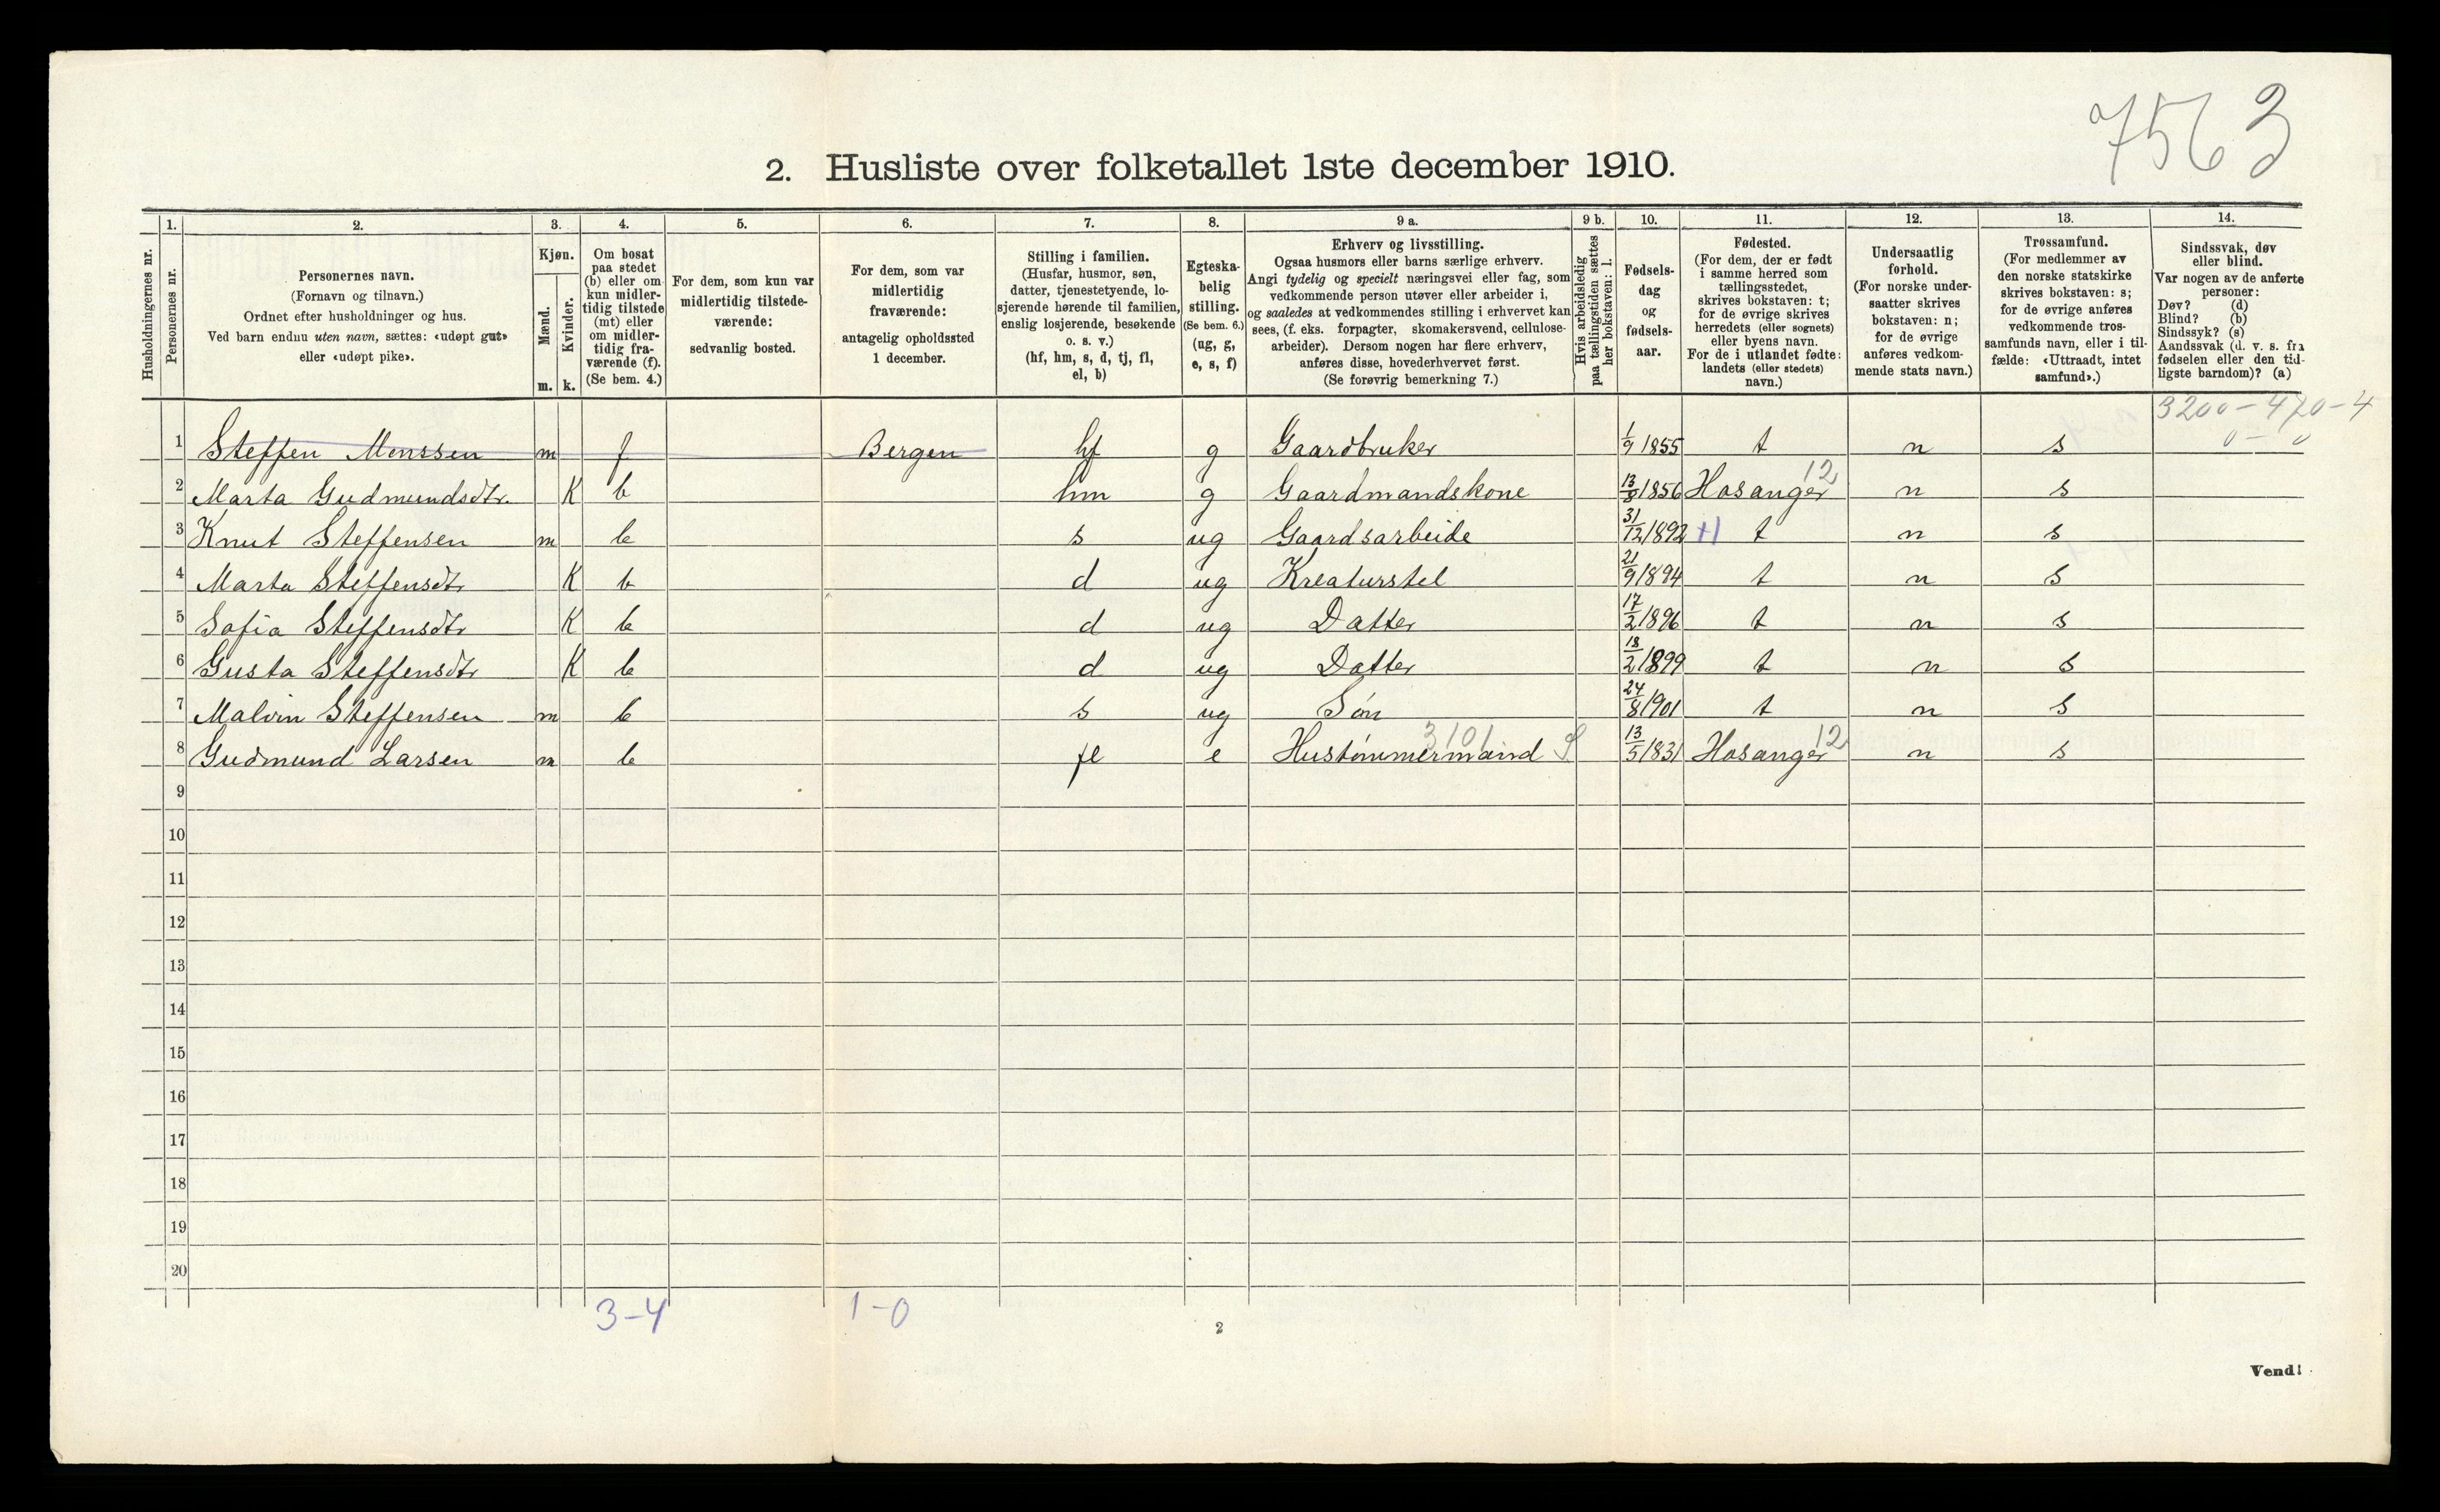 7563
2. Husliste over folketallet 1ste december 1910.
1. 2. 3. 4. 5. 6. 7. 8. 9 a. 9 b. 10. 11. 12. 13. 14.
Husholdningernes nr.
Personernes nr.
Personernes navn.
(Fornavn og tilnavn.)
Ordnet efter husholdninger og hus.
Ved barn endnu uten navn, sættes: «udøpt gut»
eller «udøpt pike».
Kjøn.
Mænd.
Kvinder.
m. k.
Om bosat
paa stedet
(b) eller om
kun midler-
tidig tilstede
(mt) eller
om midler-
tidig fra-
værende (f).
(Se bem. 4.)
For dem, som kun var
midlertidig tilstede-
værende:
sedvanlig bosted.
For dem, som var
midlertidig
fraværende:
antagelig opholdssted
1 december.
Stilling i familien.
(Husfar, husmor, søn,
datter, tjenestetyende, lo-
sjerende hørende til familien,
enslig losjerende, besøkende
o. s. v.)
(hf, hm, s, d, tj, fl,
el, b)
Egteska-
belig
stilling.
(Se bem. 6.)
(ug, g,
e, s, f)
Erhverv og livsstilling.
Ogsaa husmors eller barns særlige erhverv.
Angi tydelig og specielt næringsvei eller fag, som
vedkommende person utøver eller arbeider i,
og saaledes at vedkommendes stilling i erhvervet kan
sees, (f. eks. forpagter, skomakersvend, cellulose-
arbeider). Dersom nogen har flere erhverv,
anføres disse, hovederhvervet først.
(Se forøvrig bemerkning 7.)
Hvis arbeidsledig
paa tællingstiden sættes
her bokstaven: l.
Fødsels-
dag
og
fødsels-
aar.
Fødested.
(For dem, der er født
i samme herred som
tællingsstedet,
skrives bokstaven: t;
for de øvrige skrives
herredets (eller sognets)
eller byens navn.
For de i utlandet fødte:
landets (eller stedets)
navn.)
Undersaatlig
forhold.
(For norske under-
saatter skrives
bokstaven: n;
for de øvrige
anføres vedkom-
mende stats navn.)
Trossamfund.
(For medlemmer av
den norske statskirke
skrives bokstaven: s;
for de øvrige anføres
vedkommende tros-
samfunds navn, eller i til-
fælde: «Uttraadt, intet
samfund».)
Sindssvak, døv
eller blind.
Var nogen av de anførte
personer:
Døv? (d)
Blind? (b)
Sindssyk? (s)
Aandssvak (d. v. s. fra
fødselen eller den tid-
ligste barndom)? (a)
3200-420-4
0-0
1 Steffen Monssen m f Bergen hf g Gaardbruker 1/9 1855 t n s
2 Marta Gudmundsdtr. K b hm g Gaardmandskone 13/8 1856 Hosanger 12 n s
3 Knut Steffensen m b s ug Gaardsarbeide 31/12 1892 +1 t n s
4 Marta Steffensdtr K b d ug Kreaturstel 21/9 1894 t n s
5 Sofia Steffensdtr K b d ug Datter 17/2 1896 t n s
6 Gusta Steffensdtr K b d ug Datter 18/2 1899 t n s
7 Malvin Steffensen m b s ug Søn 24/8 1901 t n s
8 Gudmund Larsen m b fl e Hustømmermand 3101 S 13/5 1831 Hosanger 12 n s
9
10
11
12
13
14
15
16
17
18
19
20
3-4 1-0
2
Vend!